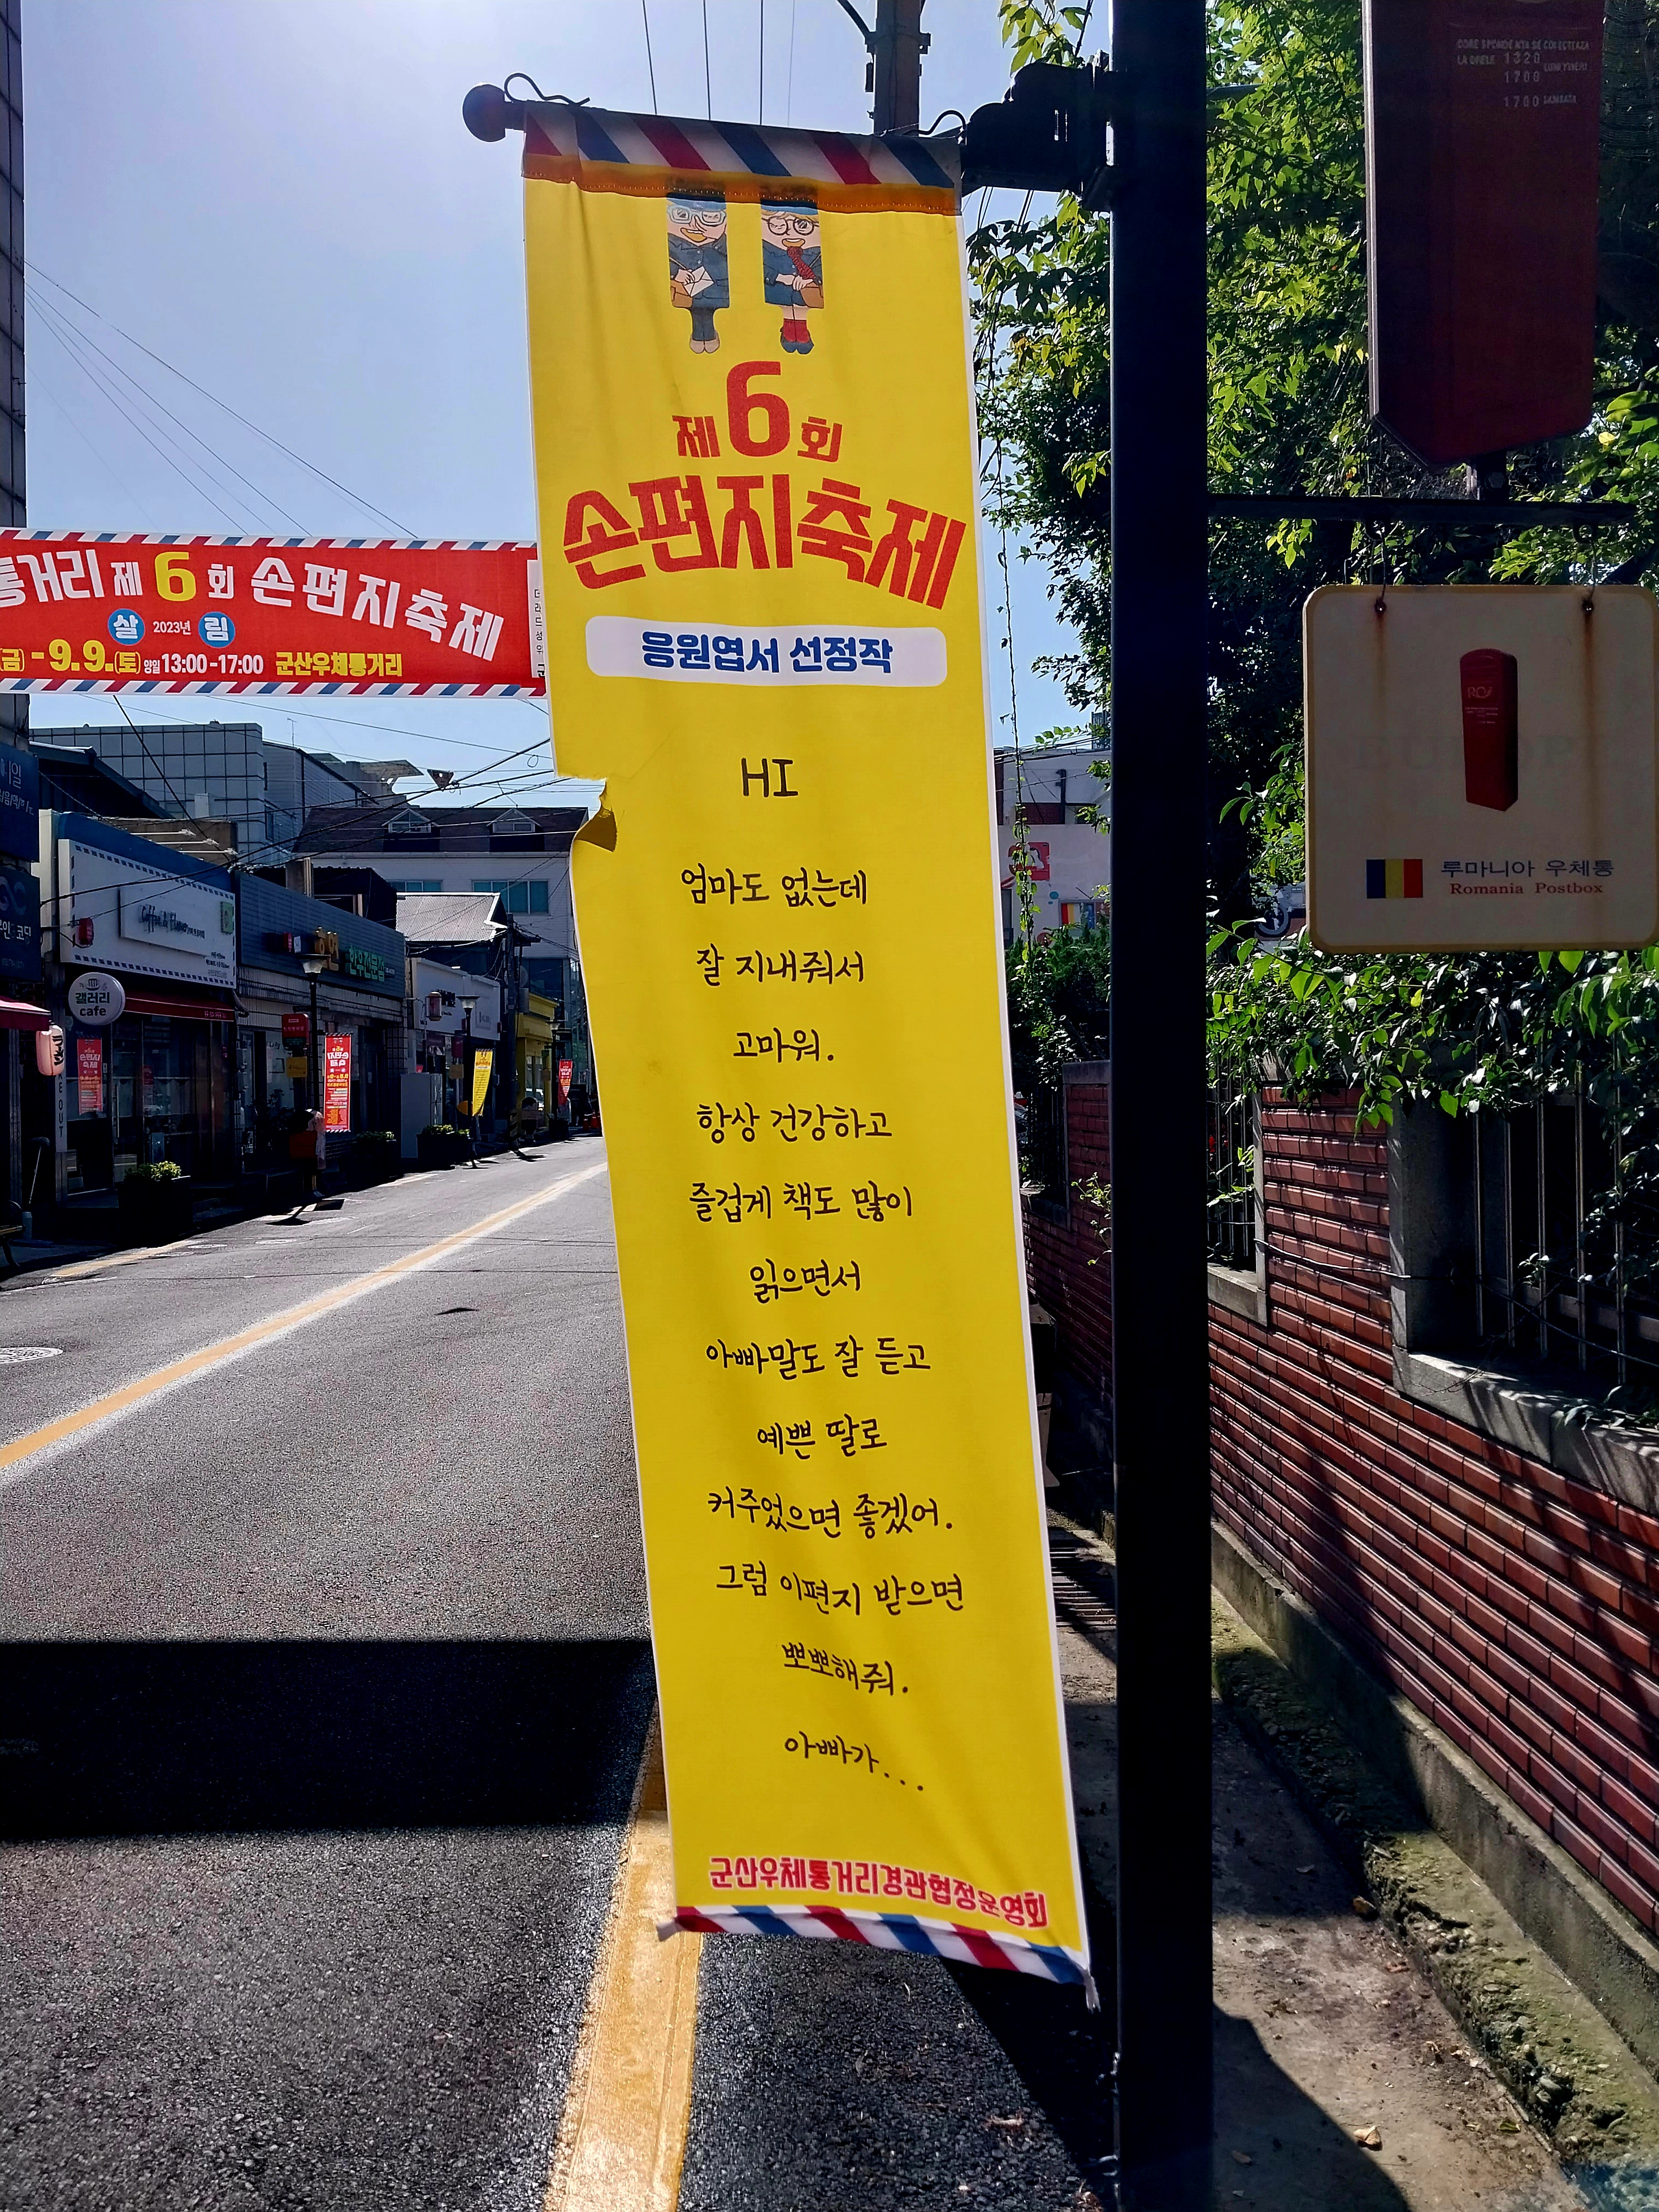 제6회
손편지축제
응원엽서 선정작
HI
엄마도 없는데
잘 지내줘서
고마워.
항상 건강하고
즐겁게 책도 많이
읽으면서
아빠말도 잘 듣고
예쁜 딸로
커주었으면 좋겠어.
그럼 이편지 받으면
뽀뽀해줘.
아빠가...
군산우체통거리경관협정운영회
통거리 제6회 손편지축제
살 2023년 림
(금) - 9.9.(토) 양일 13:00-17:00 군산우체통거리
LA ORELE 1320 LUNI VINERI
1700
1700 SAMBATA
루마니아 우체통
Romania Postbox
Coffee & Flower
갤러리
cafe
손편지
축제